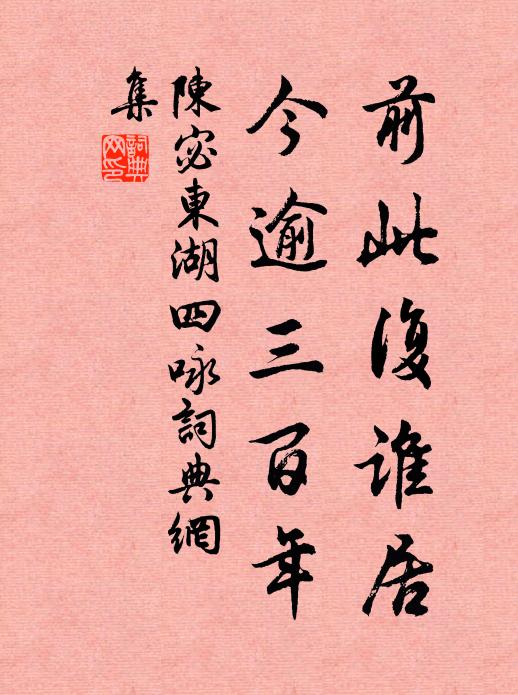 前此復誰居
今逾三百年
陳宓東湖四咏詞典網
集
詞典
网印